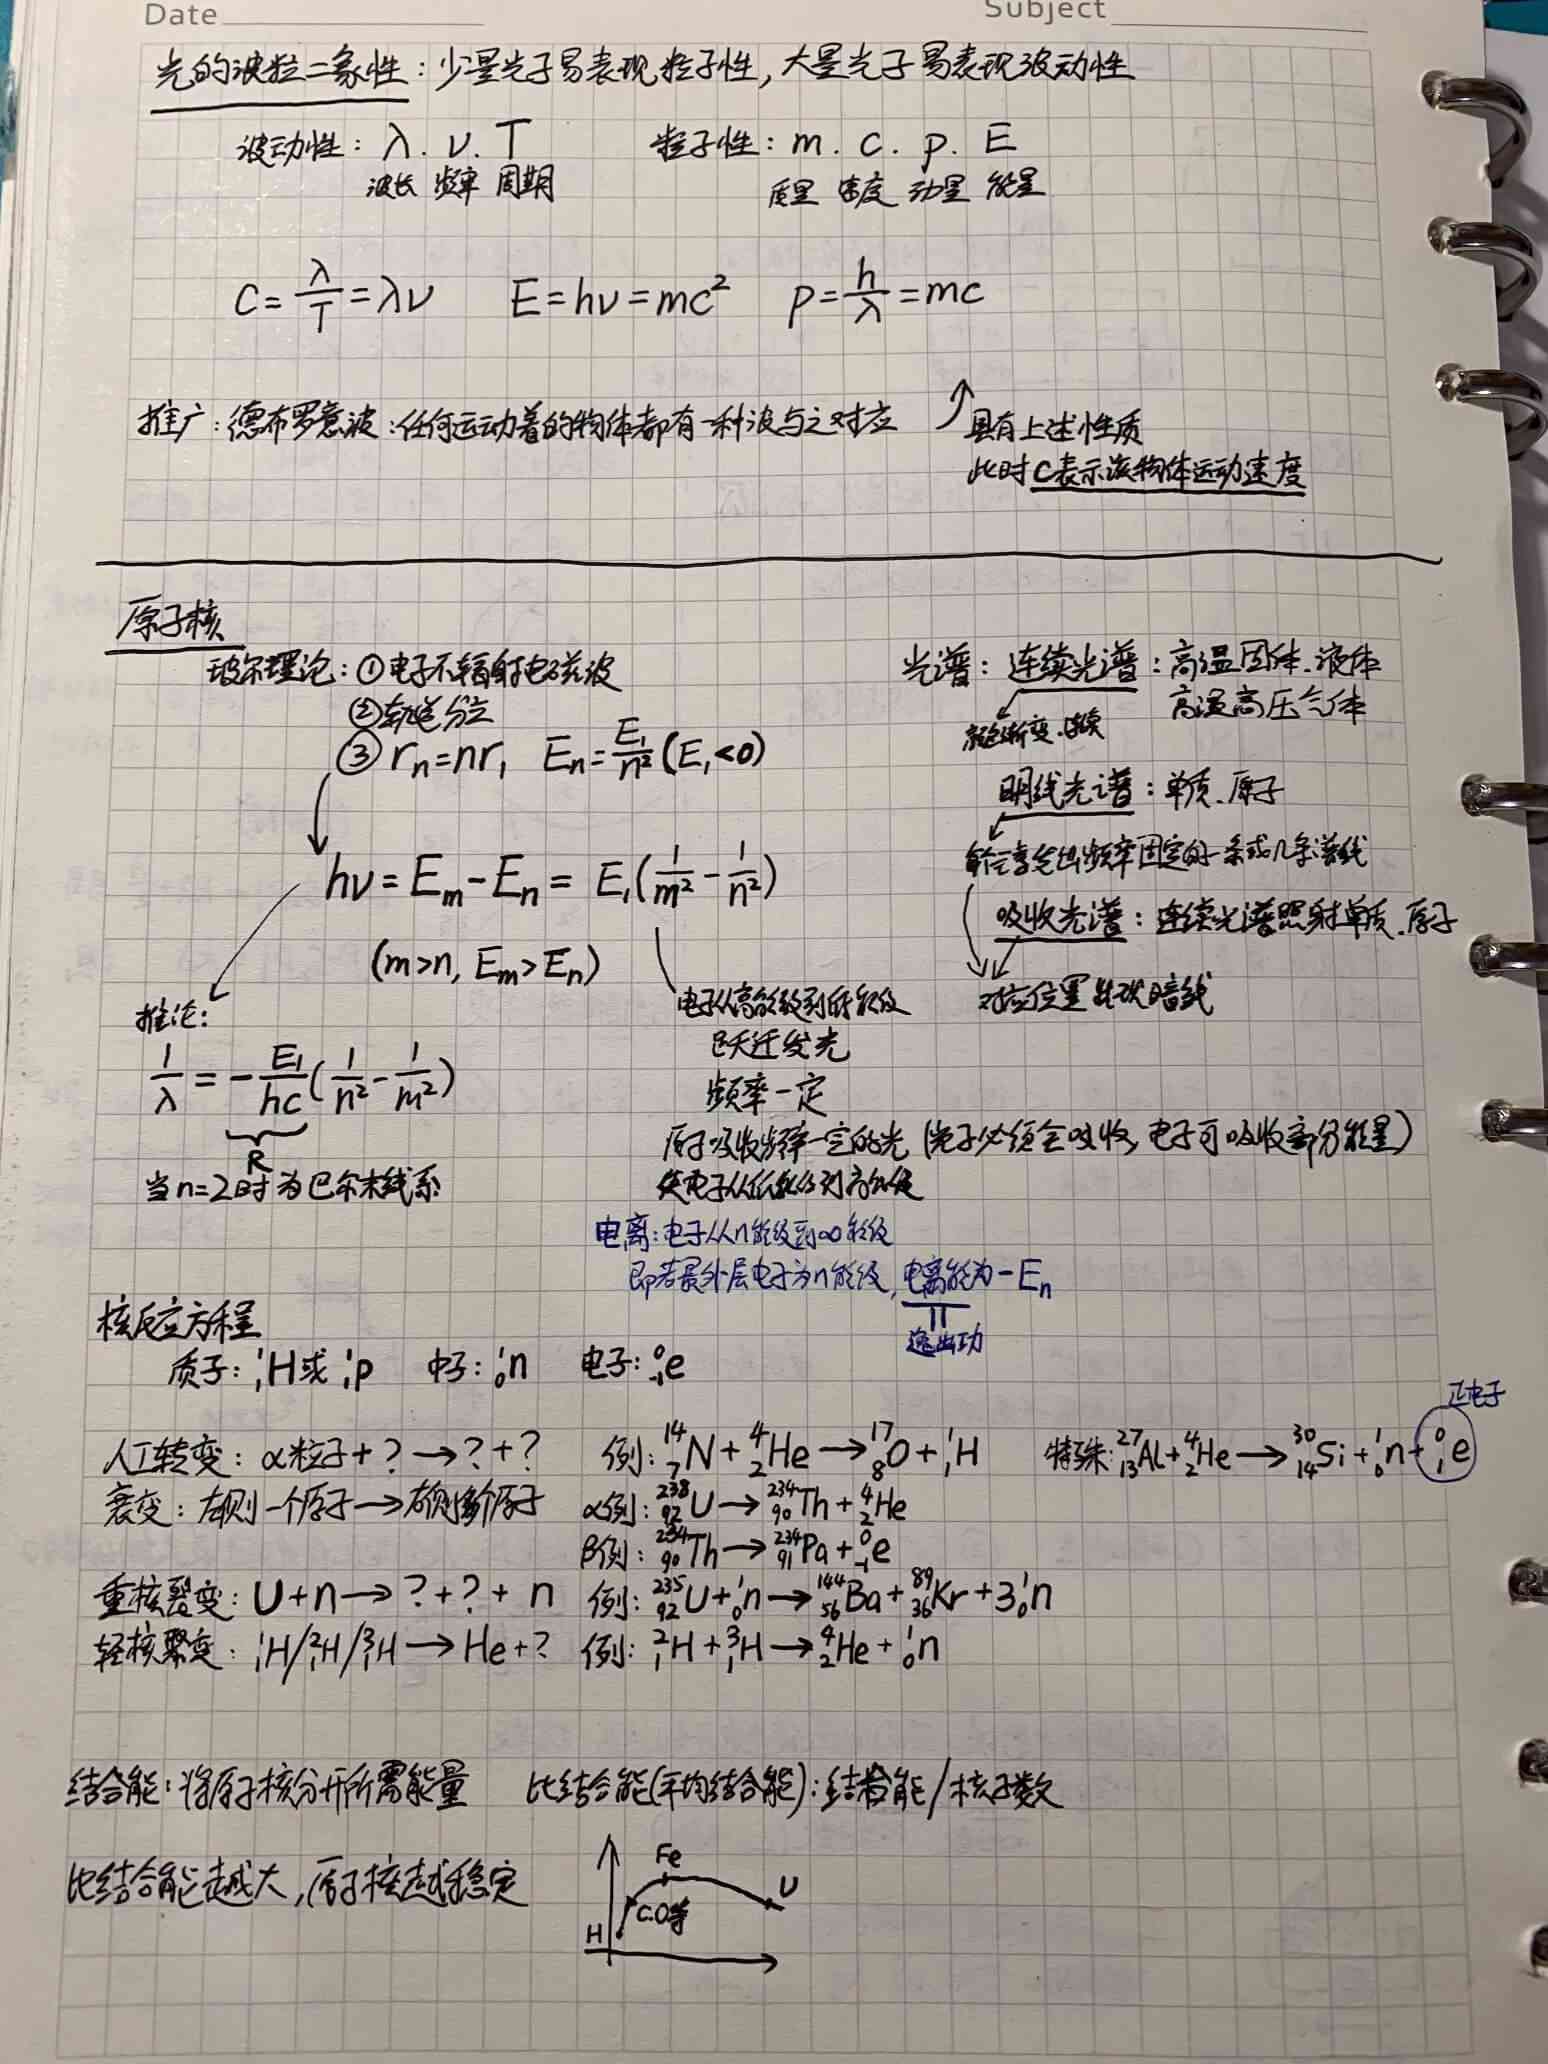 Date Subject
光的波粒二象性：少量光子易表现粒子性，大量光子易表现波动性
波动性：λ. ν. T 粒子性：m. c. p. E
波长 频率 周期 质量 速度 动量 能量
C=λ/T=λν E=hν=mc² p=h/λ=mc
推广：德布罗意波：任何运动着的物体都有一种波与之对应
具有上述性质
此时C表示该物体运动速度
原子核
玻尔理论：①电子不辐射电磁波
②轨道分立
③ rₙ=nr₁ Eₙ=E₁/n² (E₁<0)
hν=Eₘ-Eₙ= E₁(1/m²-1/n²)
(m>n, Eₘ>Eₙ)
推论：
1/λ=-E₁/hc(1/n²-1/m²)
R
当n=2时为巴尔末线系
电子从高能级到低能级
跃迁发光
频率一定
原子吸收频率一定的光（光子必须全吸收，电子可吸收部分能量）
使电子从低能级到高能级
电离：电子从n能级到∞能级
即若最外层电子为n能级，电离能为-Eₙ
逸出功
光谱：连续光谱：高温固体.液体
高温高压气体
颜色渐变.连续
明线光谱：单质.原子
发出频率固定的一条或几条谱线
吸收光谱：连续光谱照射单质.原子
对应位置出现暗线
核反应方程
质子：¹₁H或¹₁p 中子：¹₀n 电子：⁰₋₁e
正电子
人工转变：α粒子+？→？+？ 例：¹⁴₇N+⁴₂He→¹⁷₈O+¹₁H 特殊：²⁷₁₃Al+⁴₂He→³⁰₁₄Si+¹₀n+⁰₁e
衰变：左侧一个原子→右侧多个原子 α例：²³⁸₉₂U→²³⁴₉₀Th+⁴₂He
β例：²³⁴₉₀Th→²³⁴₉₁Pa+⁰₋₁e
重核裂变：U+n→？+？+n 例：²³⁵₉₂U+¹₀n→¹⁴⁴₅₆Ba+⁸⁹₃₆Kr+3¹₀n
轻核聚变：¹₁H/²₁H/³₁H→He+？ 例：²₁H+³₁H→⁴₂He+¹₀n
结合能：将原子核分开所需能量 比结合能(平均结合能)：结合能/核子数
比结合能越大，原子核越稳定
Fe
U
C.O等
H